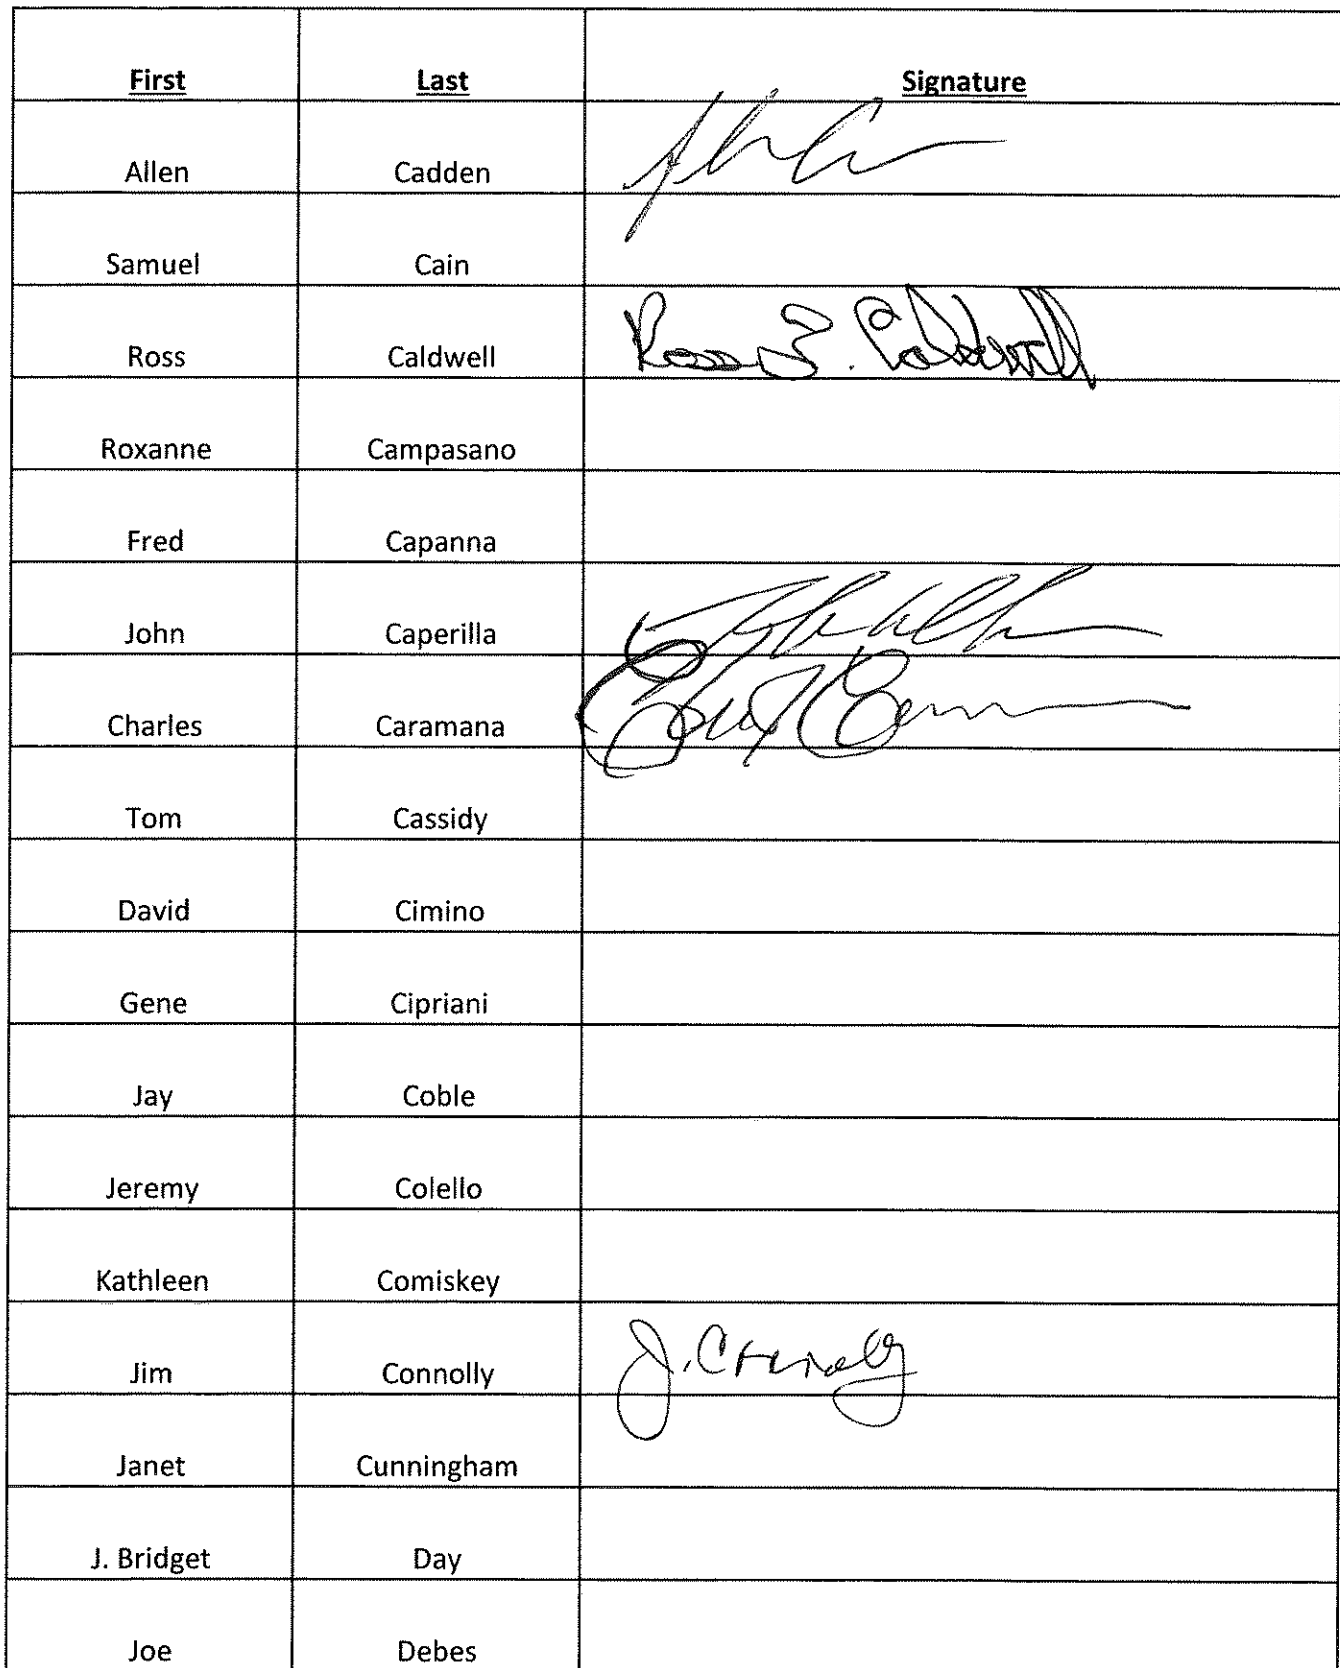 First Last Signature
Allen Cadden
Samuel Cain
Ross Caldwell Ross Z. Caldwell
Roxanne Campasano
Fred Capanna
John Caperilla
Charles Caramana
Tom Cassidy
David Cimino
Gene Cipriani
Jay Coble
Jeremy Colello
Kathleen Comiskey
Jim Connolly J. Connolly
Janet Cunningham
J. Bridget Day
Joe Debes